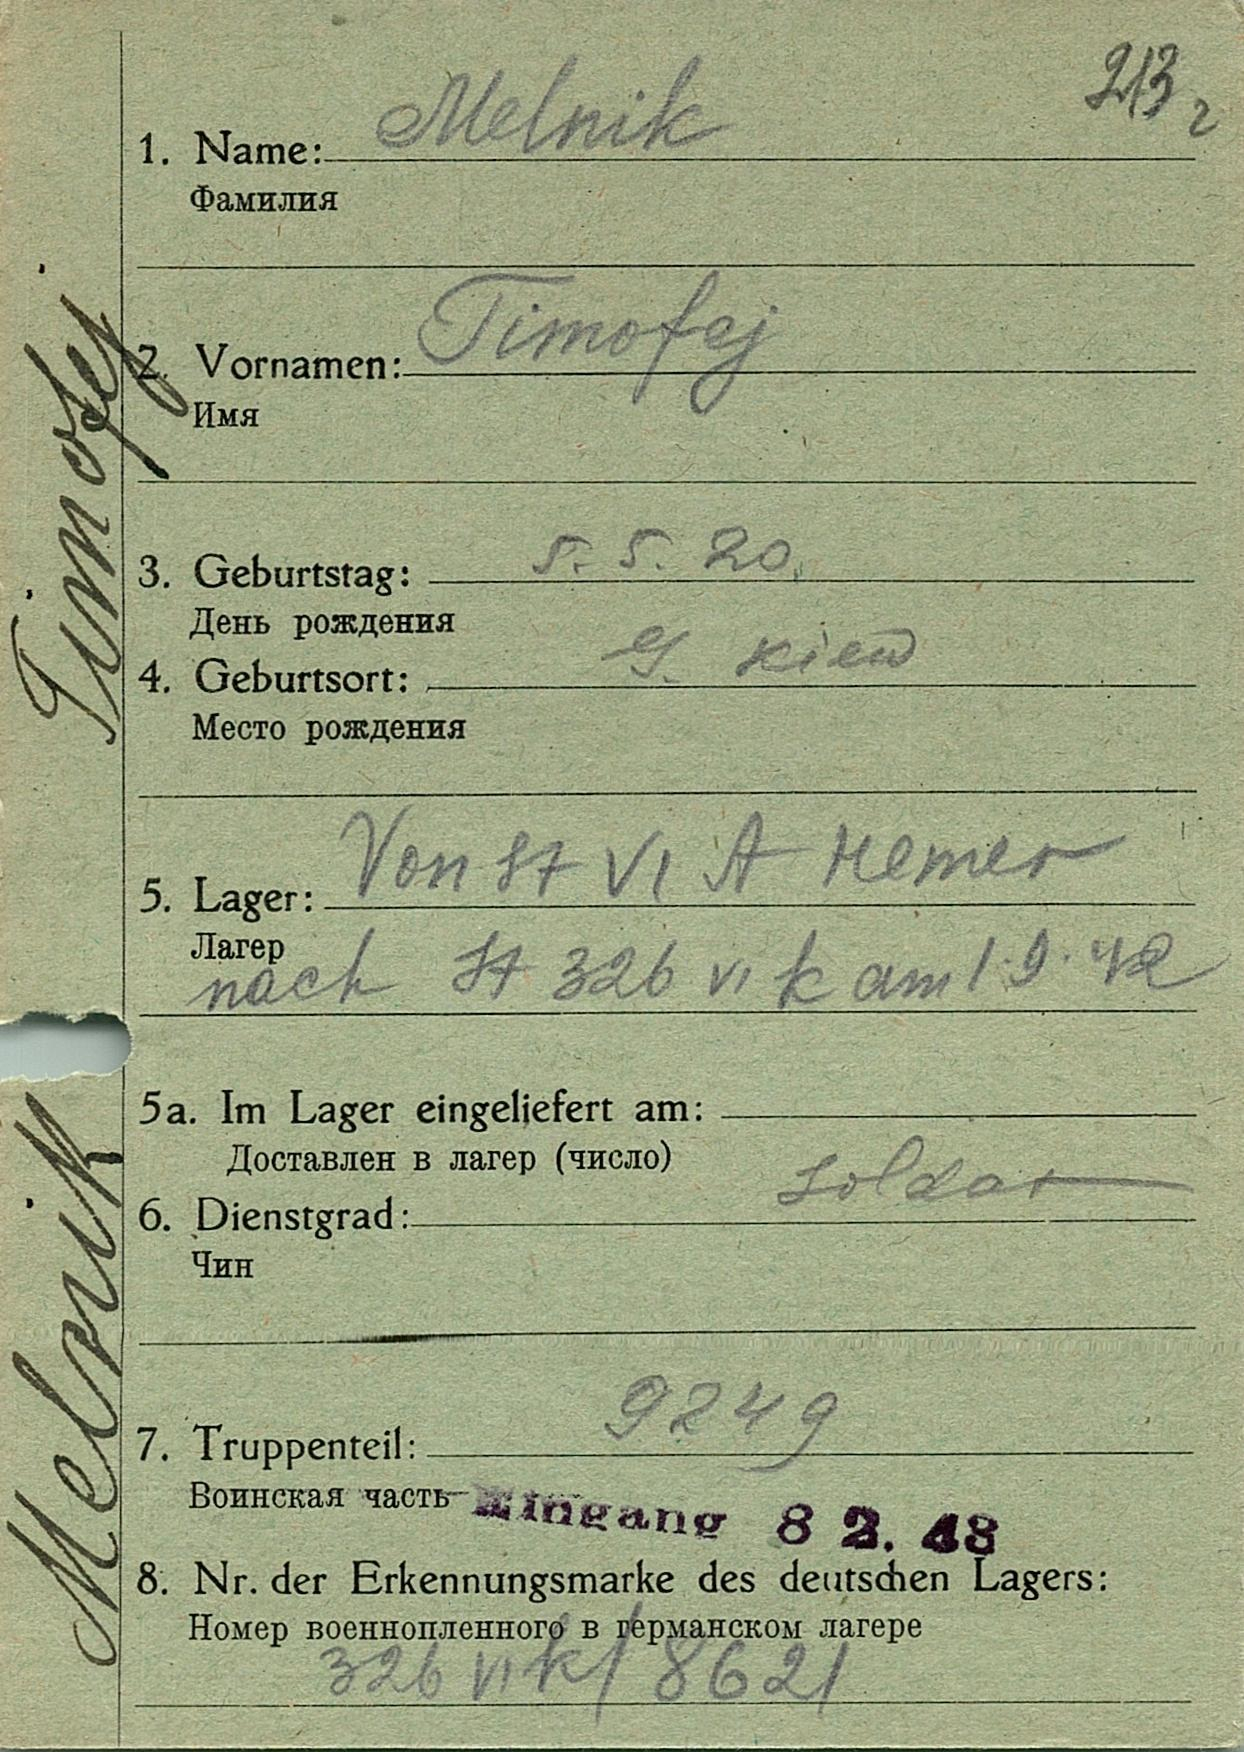 213
2
1. Name: Melnik
Фамилия
2. Vornamen: Timofej
Имя
3. Geburtstag: 5. 5. 20.
День рождения
4. Geburtsort: G. Kiew
Место рождения
5. Lager: Von St VI A Hemer
Лагер
nach St 326 VI k am 1.9.42
5a. Im Lager eingeliefert am:
Доставлен в лагер (число)
6. Dienstgrad: Soldat
Чин
7. Truppenteil: 9249
Воинская часть
Eingang 8 2. 43
8. Nr. der Erkennungsmarke des deutschen Lagers:
Номер военнопленного в германском лагере
326 VI k/ 8621
Melnik Timofej